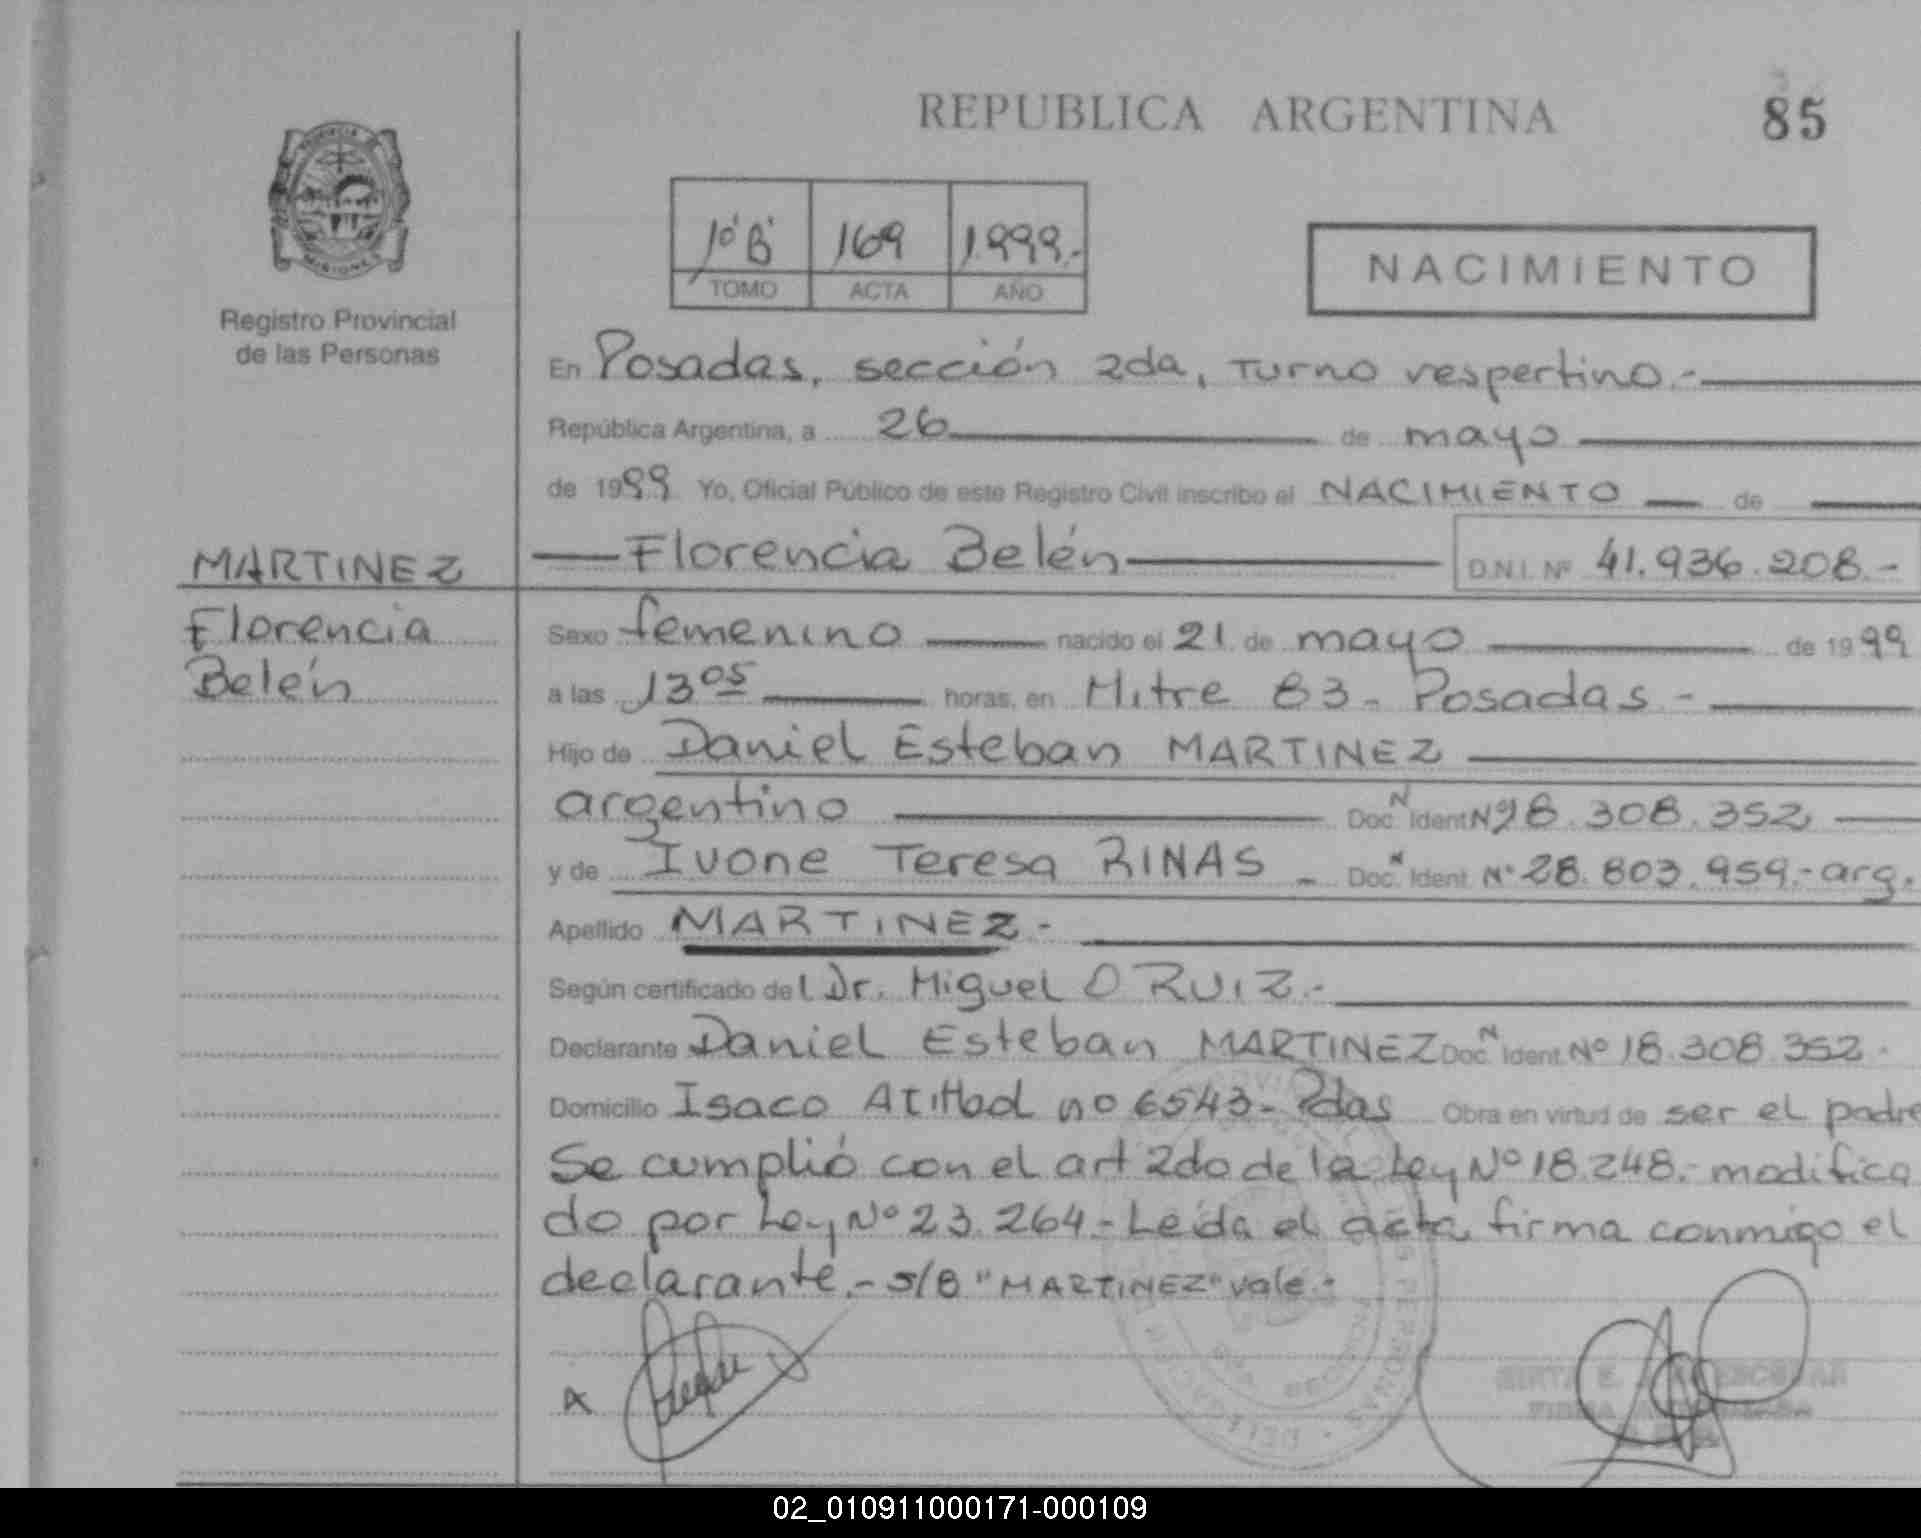 REPUBLICA ARGENTINA
85
MISIONES
Registro Provincial
de las Personas
1º "B" 169 1.999.-
TOMO ACTA AÑO
NACIMIENTO
En Posadas, sección 2da, Turno vespertino.-
República Argentina, a 26 de mayo
de 1999 Yo, Oficial Público de este Registro Civil inscribo el NACIMIENTO de
MARTINEZ
Florencia
Belén
Florencia Belén D.N.I. Nº 41.936.208.-
Sexo femenino nacido el 21 de mayo de 1999
a las 13 05 horas, en Mitre 83 - Posadas -
Hijo de Daniel Esteban MARTINEZ
argentino Doc. N Ident Nº 18.308.352
y de Ivone Teresa RINAS - Doc. N Ident. Nº 28.803.959.- arg.
Apellido MARTINEZ.-
Según certificado del Dr. Miguel O RUIZ.-
Declarante Daniel Esteban MARTINEZ Doc. N Ident. Nº 18.308.352.
Domicilio Isaco nº 6543- Pdas Obra en virtud de ser el padre
Se cumplió con el art 2do de la Ley Nº 18.248.- modifica
do por Ley Nº 23.264.- Leída el acta firma conmigo el
declarante.- S/B "MARTINEZ" vale.-
02_010911000171-000109